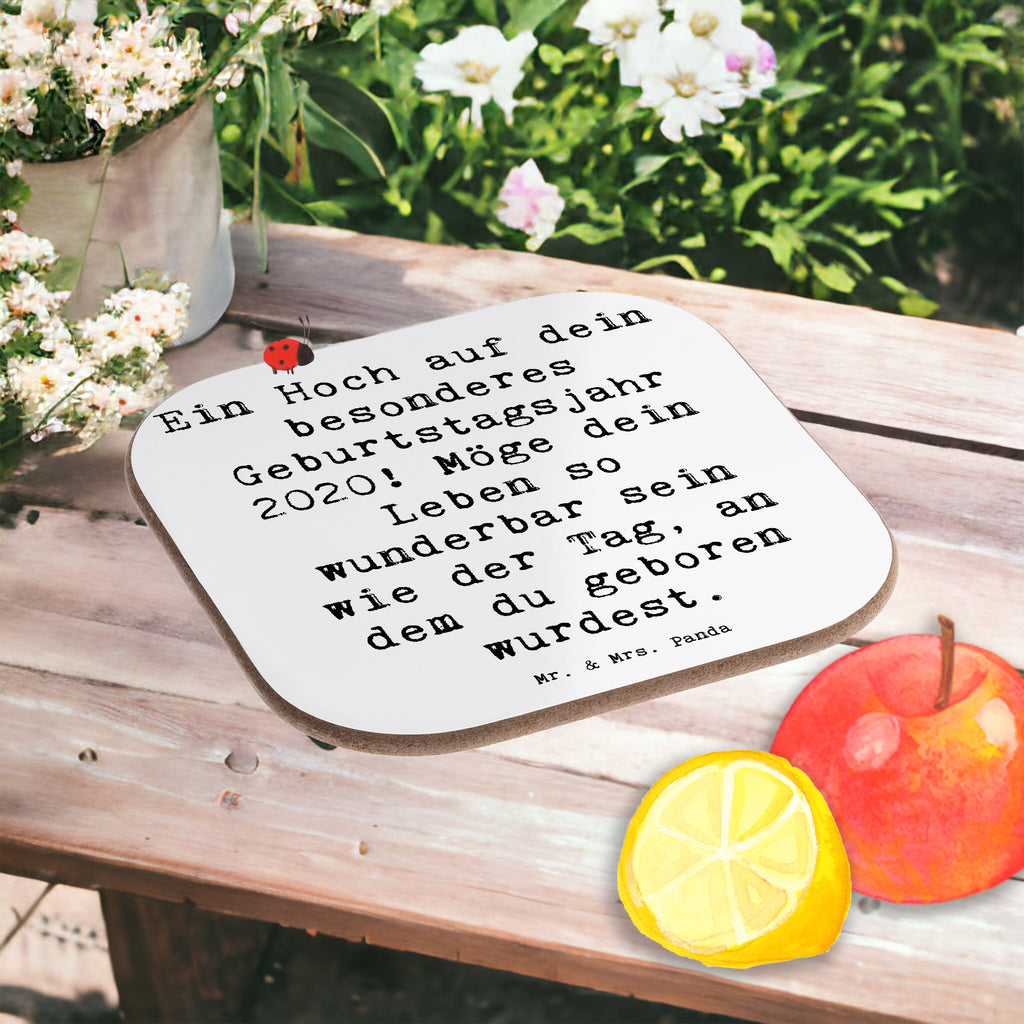 Ein Hoch auf dein
besonderes
Geburtstagsjahr
2020! Möge dein
Leben so
wunderbar sein
wie der Tag, an
dem du geboren
wurdest.
Mr. & Mrs. Panda